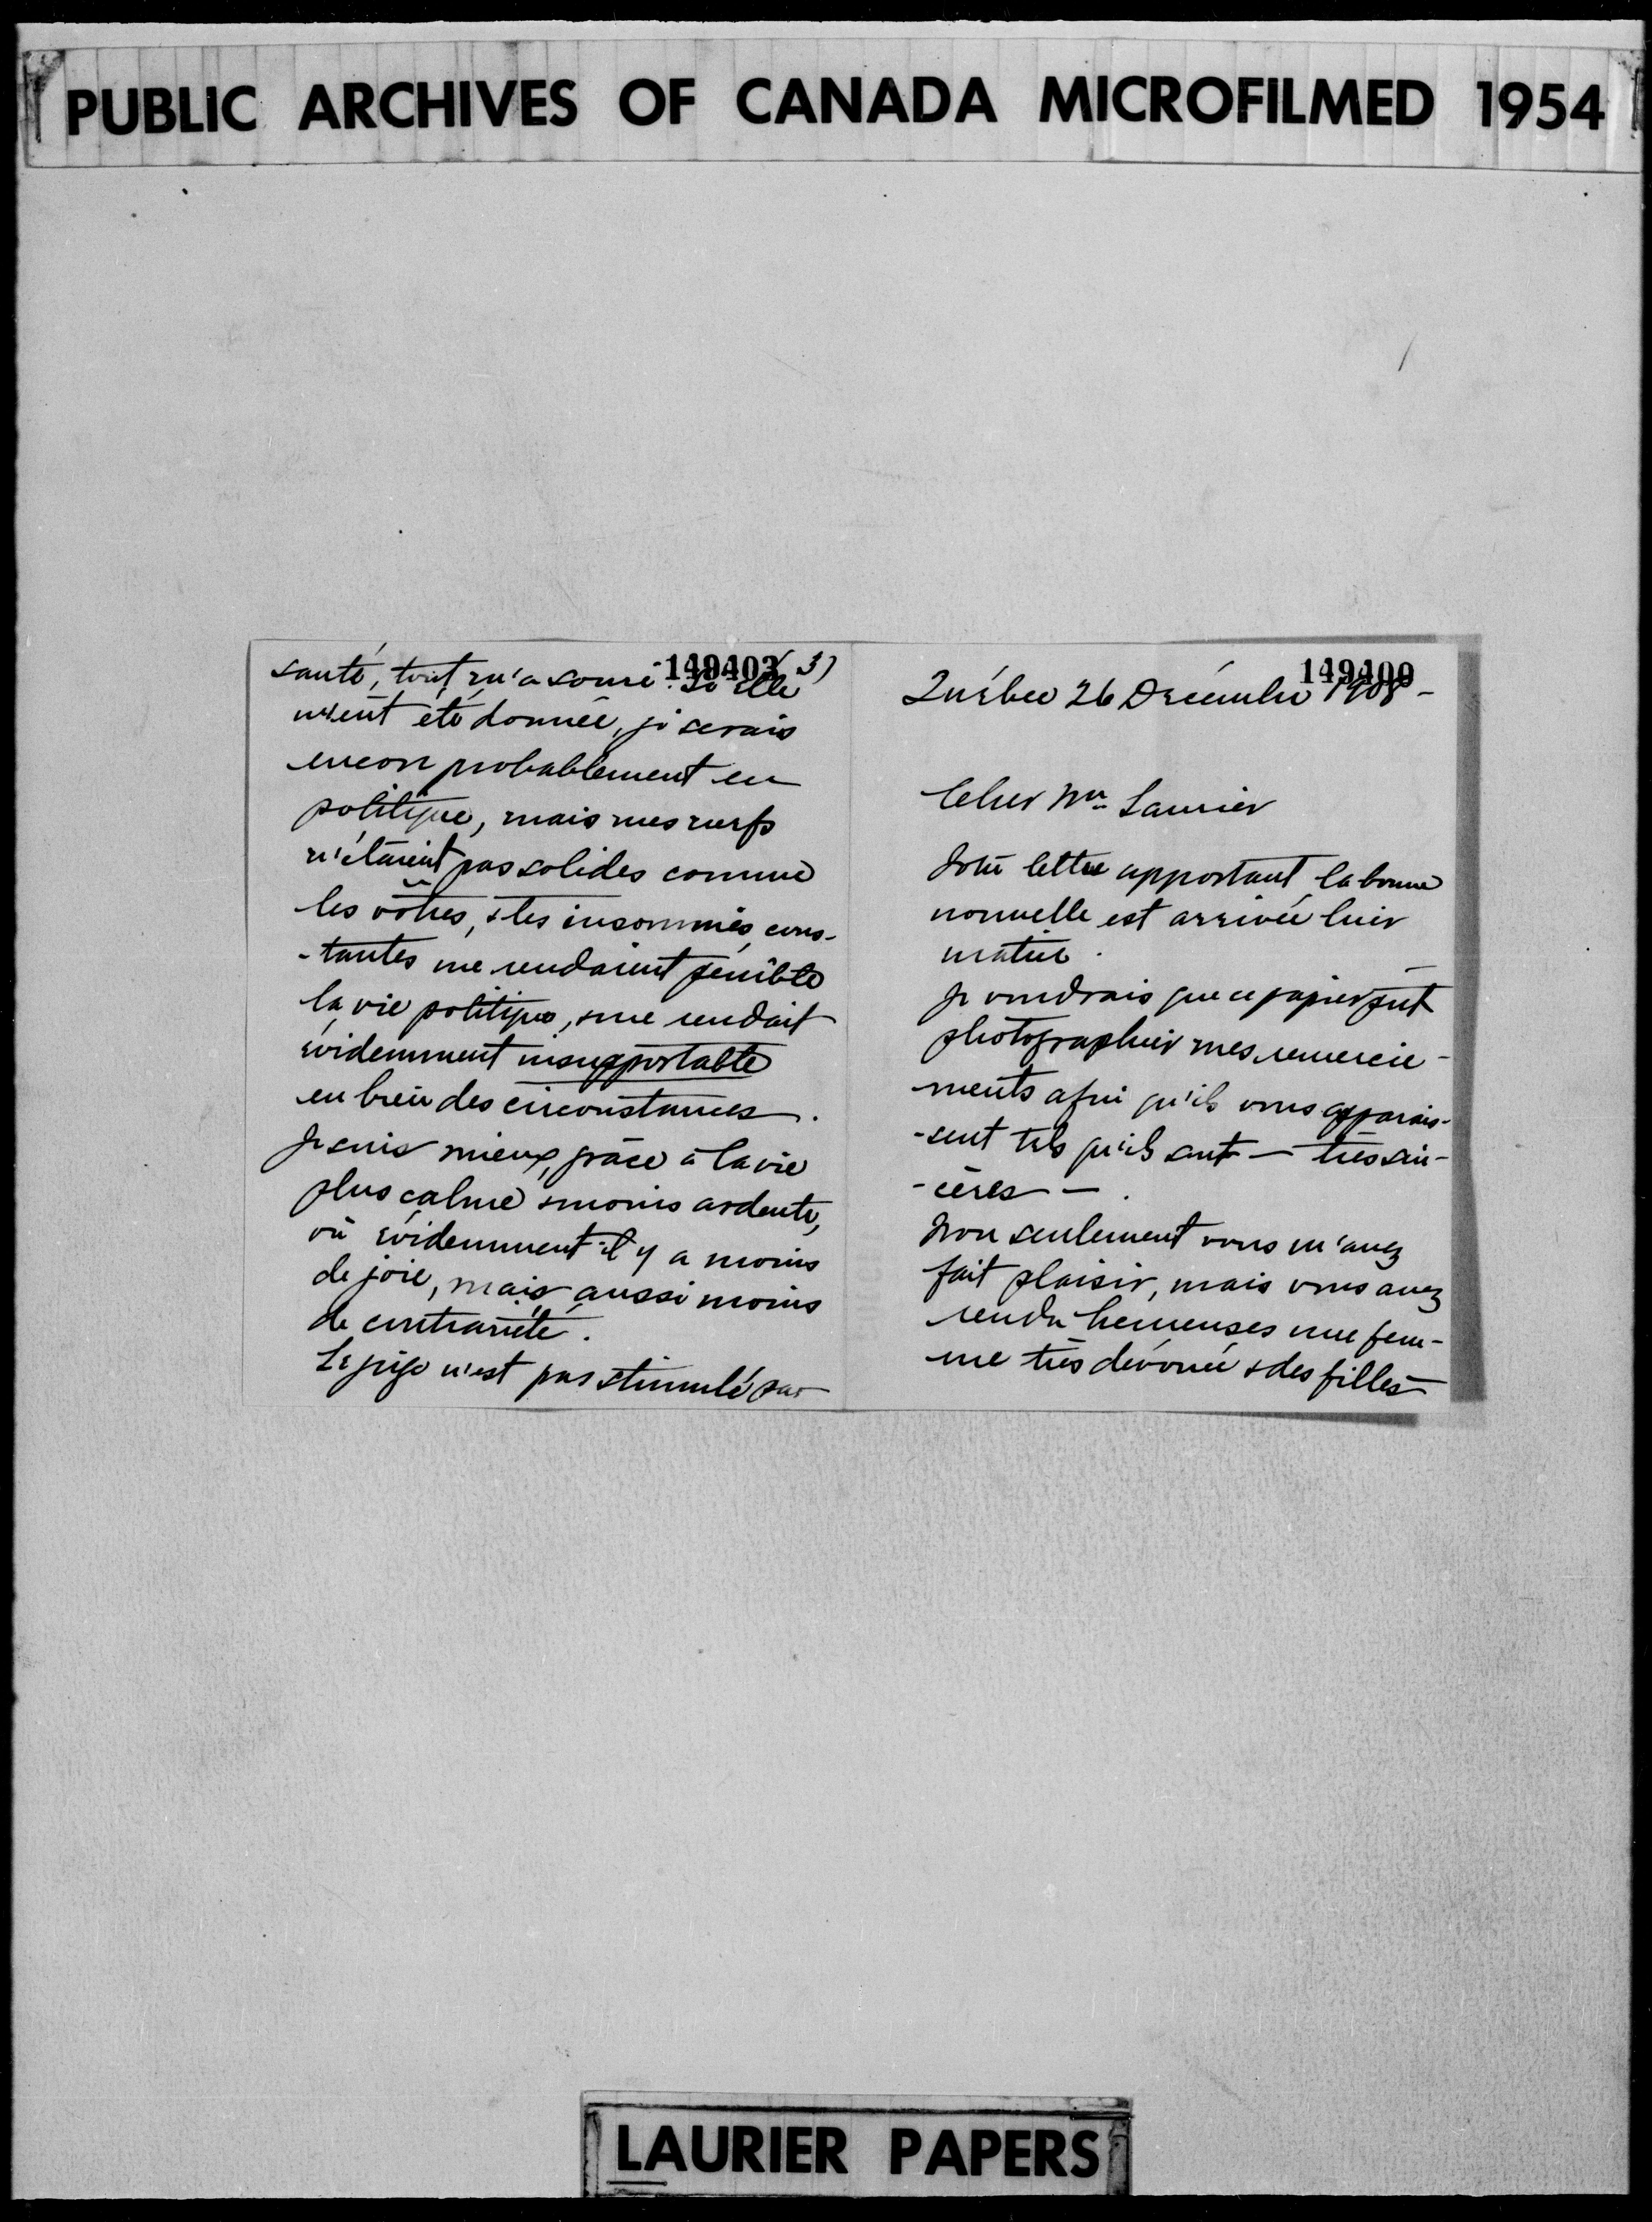 PUBLIC ARCHIVES OF CANADA MICROFILMED 1954
149403 3)
santé, tout m'a souri. Si elle
m'eut été donnée, je serais
encore probablement en
politique, mais mes nerfs
n'étaient pas solides comme
les vôtres, & les insomnies cons-
-tantes me rendaient pénible
la vie politique, & me rendait
évidemment insupportable
en bien des circonstances.
Je suis mieux, grâce à la vie
plus calme & moins ardente,
où évidemment il y a moins
de joie, mais aussi moins
de contrariété.
Le juge n'est pas stimulé par
149400
Québec 26 Décembre 1908 -
Cher Mr. Laurier
Votre lettre apportant la bonne
nouvelle est arrivée hier
matin.
Je voudrais que ce papier put
photographier mes remercie-
ments afin qu'ils vous apparais-
-sent tels qu'ils sont — très sin-
-cères — .
Non seulement vous m'avez
fait plaisir, mais vous avez
rendu heureuses une fem-
me très dévouée & des filles
LAURIER PAPERS